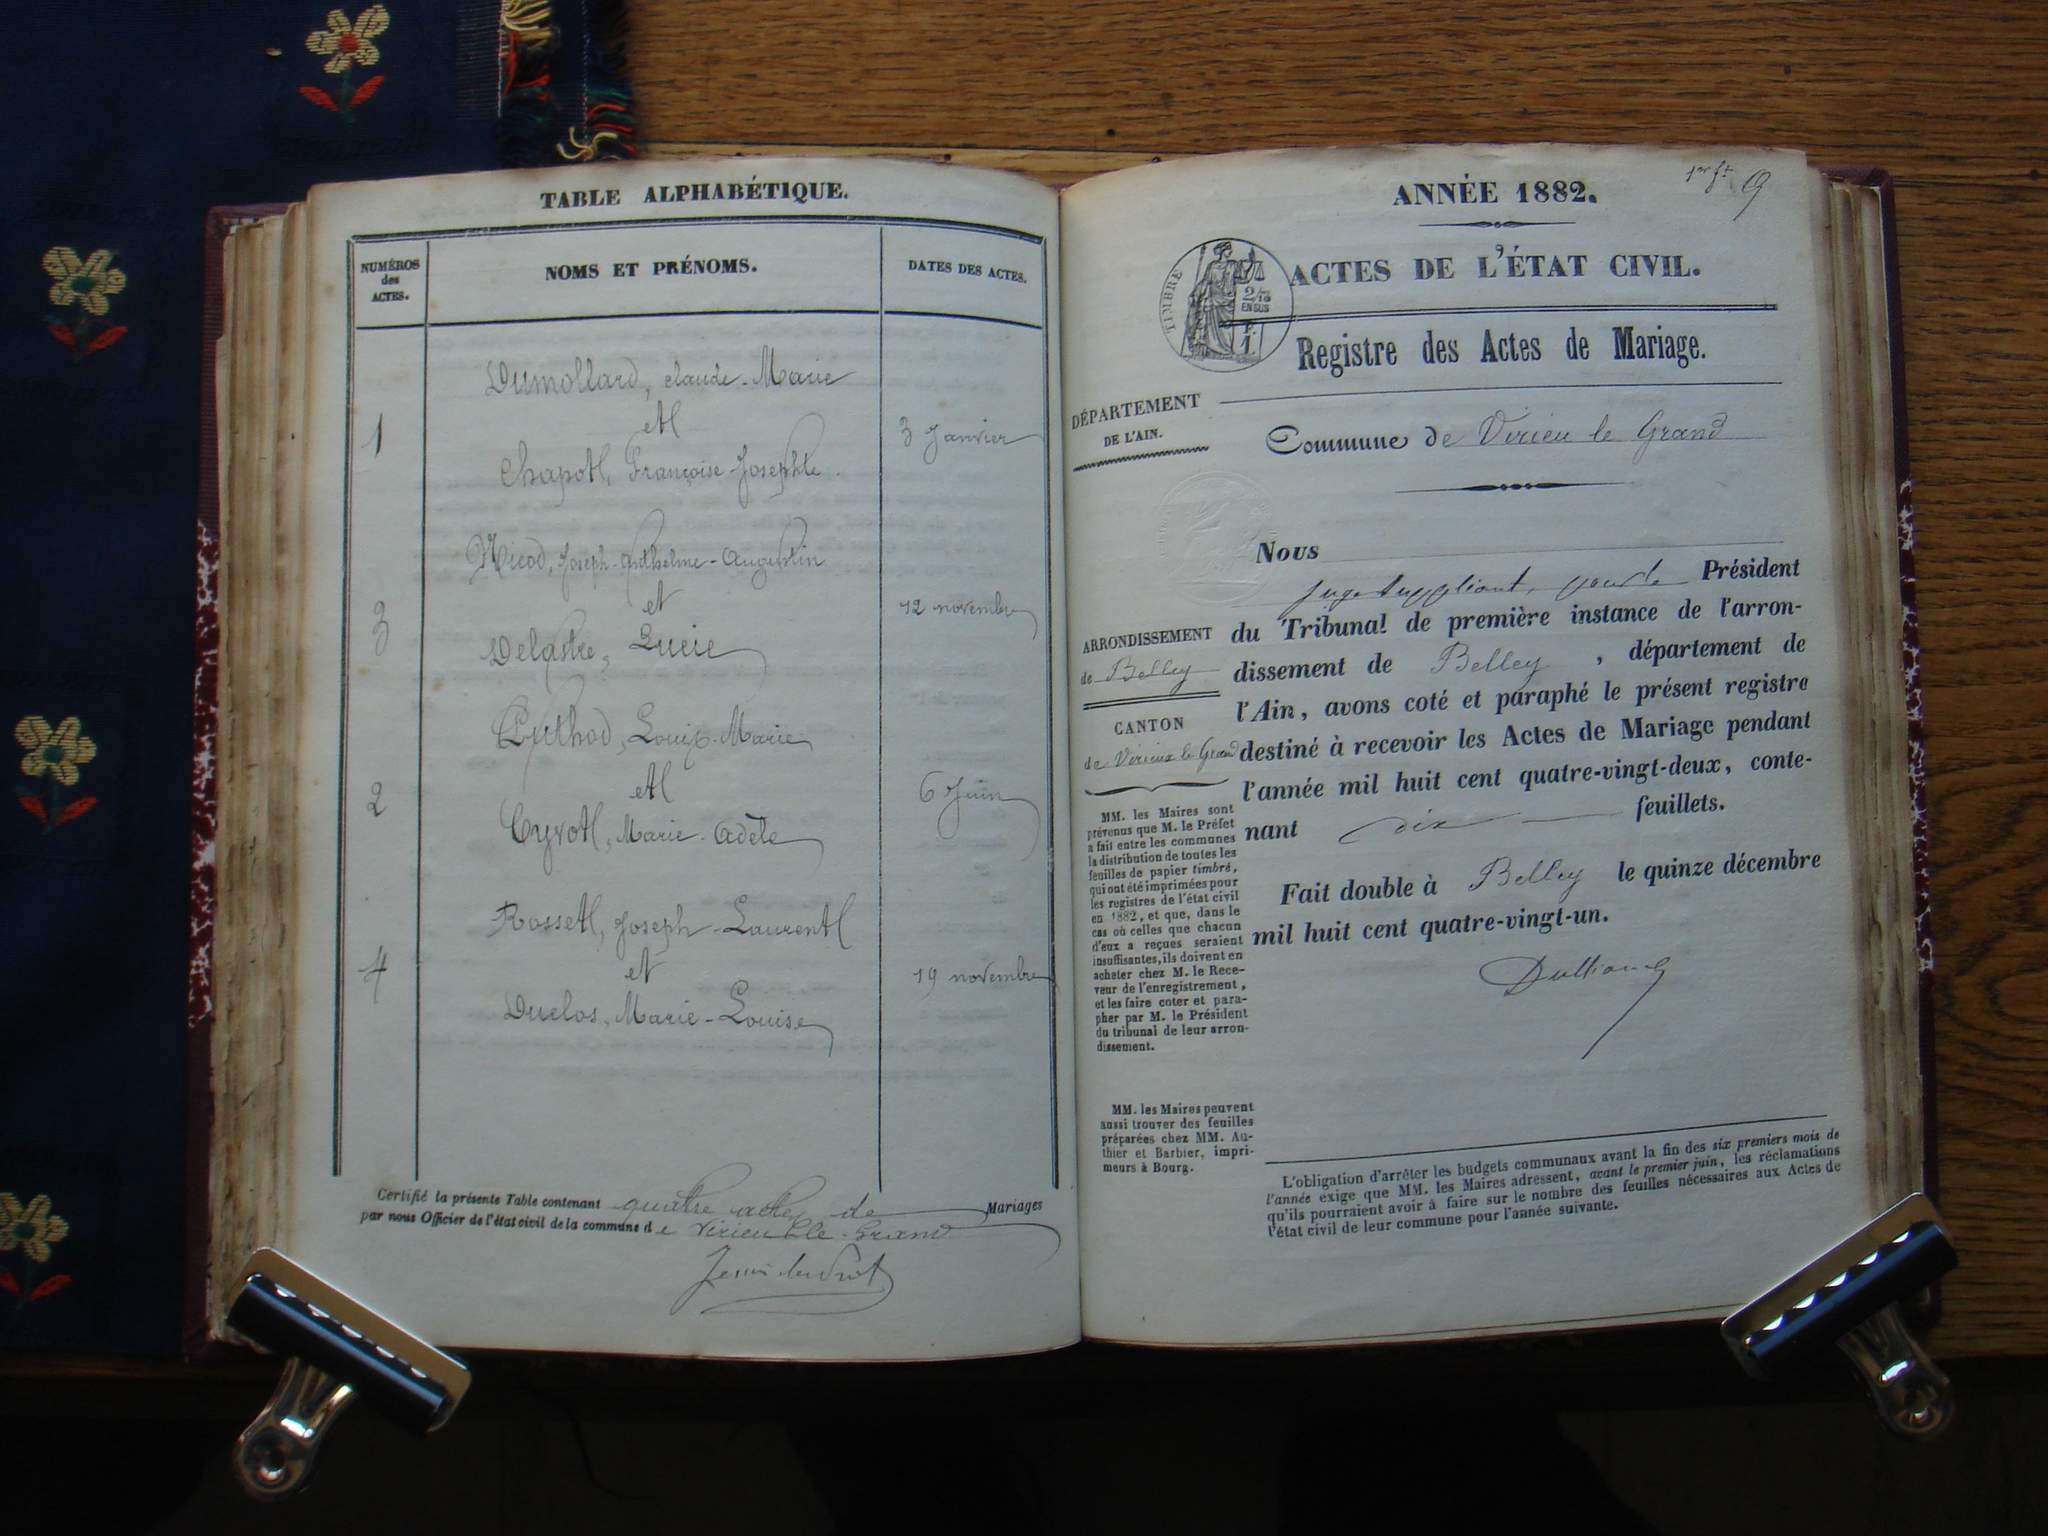 TABLE ALPHABÉTIQUE.
NUMÉROS
des
ACTES.
NOMS ET PRÉNOMS.
DATES DES ACTES.
Dumollard, Claude-Marie
et
1
3 Janvier
Chapot, Françoise-Josephte
Nicod, Joseph-Anthelme-Augustin
et
3
12 novembre
Delastre, Lucie
Puthod, Louis-Marie
et
2
6 Juin
Cyvot, Marie-Adèle
Rosset, Joseph-Laurent
et
4
19 novembre
Duclos, Marie-Louise
Certifié la présente Table contenant quatre actes de Mariages
par nous Officier de l'état civil de la commune de Virieu-le-Grand
1er ft 9
ANNÉE 1882.
ACTES DE L'ÉTAT CIVIL.
TIMBRE
2/10
EN SUS
1F.
Registre des Actes de Mariage.
DÉPARTEMENT
DE L'AIN.
Commune de Virieu le Grand
Nous
juge suppléant, pour le Président
du Tribunal de première instance de l'arron-
dissement de Belley, département de
l'Ain, avons coté et paraphé le présent registre
destiné à recevoir les Actes de Mariage pendant
l'année mil huit cent quatre-vingt-deux, conte-
nant dix feuillets.
Fait double à Belley le quinze décembre
mil huit cent quatre-vingt-un.
ARRONDISSEMENT
de Belley
CANTON
de Virieux le Grand
MM. les Maires sont
prévenus que M. le Préfet
a fait entre les communes
la distribution de toutes les
feuilles de papier timbré,
qui ont été imprimées pour
les registres de l'état civil
en 1882, et que, dans le
cas où celles que chacun
d'eux a reçues seraient
insuffisantes, ils doivent en
acheter chez M. le Rece-
veur de l'enregistrement,
et les faire coter et para-
pher par M. le Président
du tribunal de leur arron-
dissement.
MM. les Maires peuvent
aussi trouver des feuilles
préparées chez MM. Au-
thier et Barbier, impri-
meurs à Bourg.
L'obligation d'arrêter les budgets communaux avant la fin des six premiers mois de
l'année exige que MM. les Maires adressent, avant le premier juin, les réclamations
qu'ils pourraient avoir à faire sur le nombre des feuilles nécessaires aux Actes de
l'état civil de leur commune pour l'année suivante.